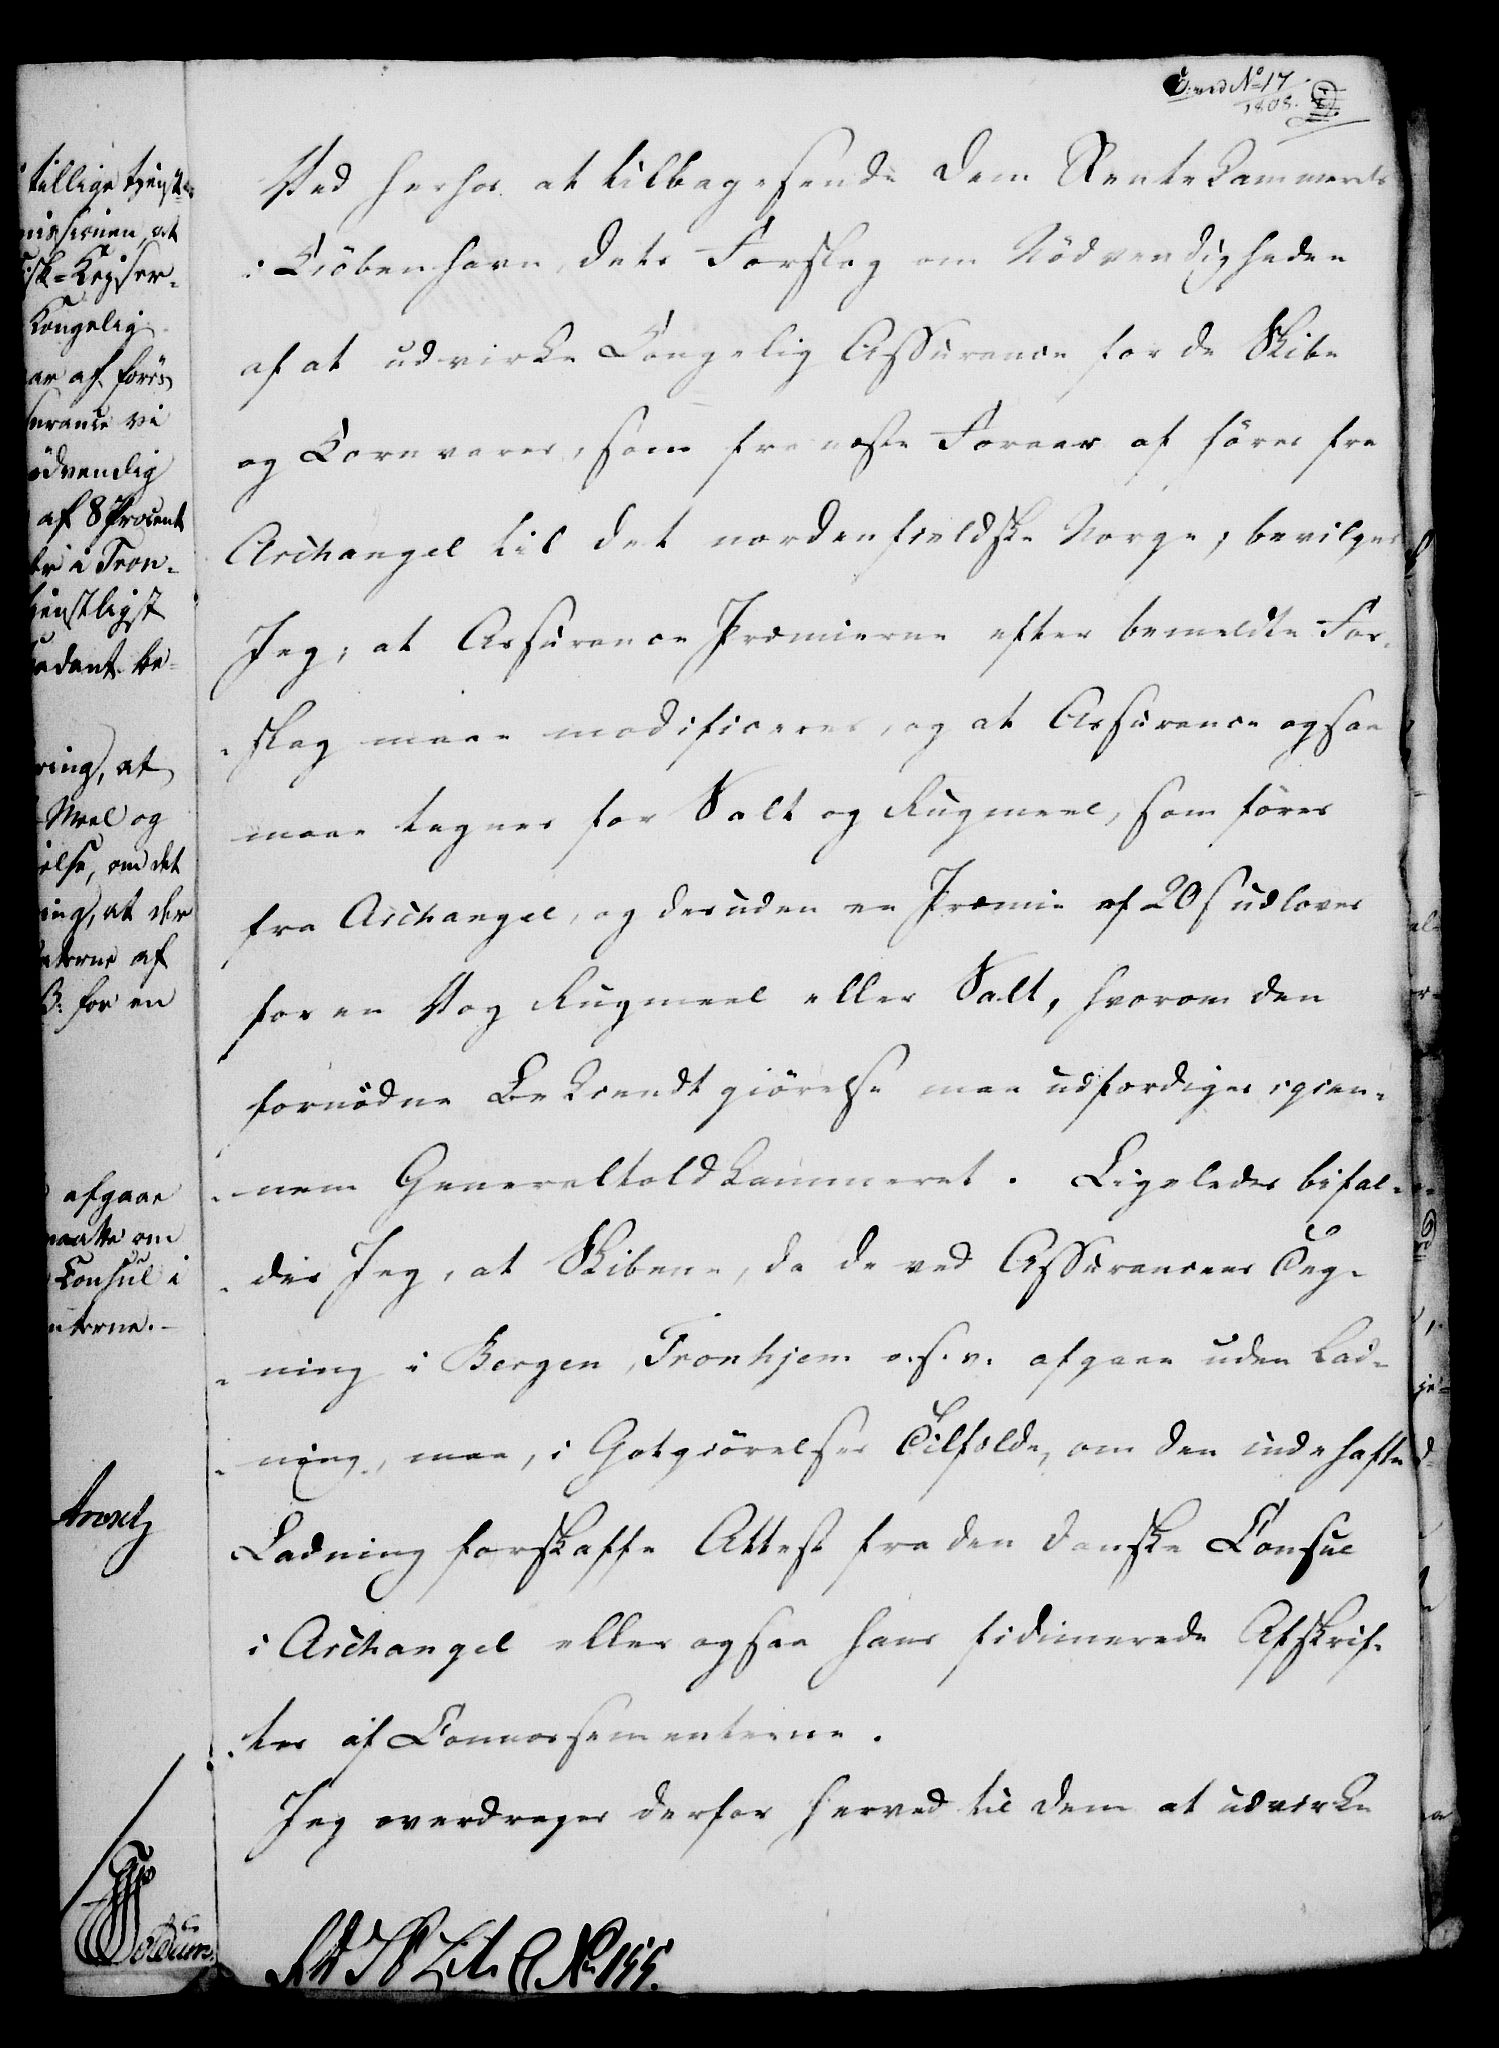 ved No 17
1808.
Ved herhos at tilbagesende Dem Rentekammerets
i Kiöbenhavn, dets Forslag om Nödvendigheden
af at udvirke Kongelig Assurance for de Skibe
og Kornvarer, som fra næste Foraar af föres fra
Archangel til det nordenfieldske Norge, bevilges
Jeg, at Assurance Præmierne efter bemeldte For-
-slag maae modificeres, og at Assurance ogsaa
maae tegnes for Salt og Rugmeel, som föres
fra Archangel, og desuden en Præmie af 20 s udloves
for en Vog Rugmeel eller Salt, hvorom den
fornödne Bekiendtgiörelse maa udfærdiges igien-
-nem Generaltoldkammeret. Ligeledes bifal-
-der Jeg, at Skibene, da de ved Assurancens Teg-
-ning i Bergen, Tronhjem o.s.v. afgaae uden Lad-
-ning, maa, i Gotgiörelses Tilfælde, om den indehafte
Ladning forskaffe Attest fra den danske Consul
i Archangel eller ogsaa hans fidimerede Afskrif-
-ter af Connossementerne.
Jeg overdrager derfor herved til Dem at udvirke
No 155.
tillige tjenst-
missionen, at
isk-Keyser-
Kongelig
ar af forös
surance vi
ödvendig
af 8 Procent
er i Tron-
tienstligst
be-
ring, at
Meel og
else, om det
ing, at der
nterne af
for en
afgaae
maatte om
Consul i
nterne.-